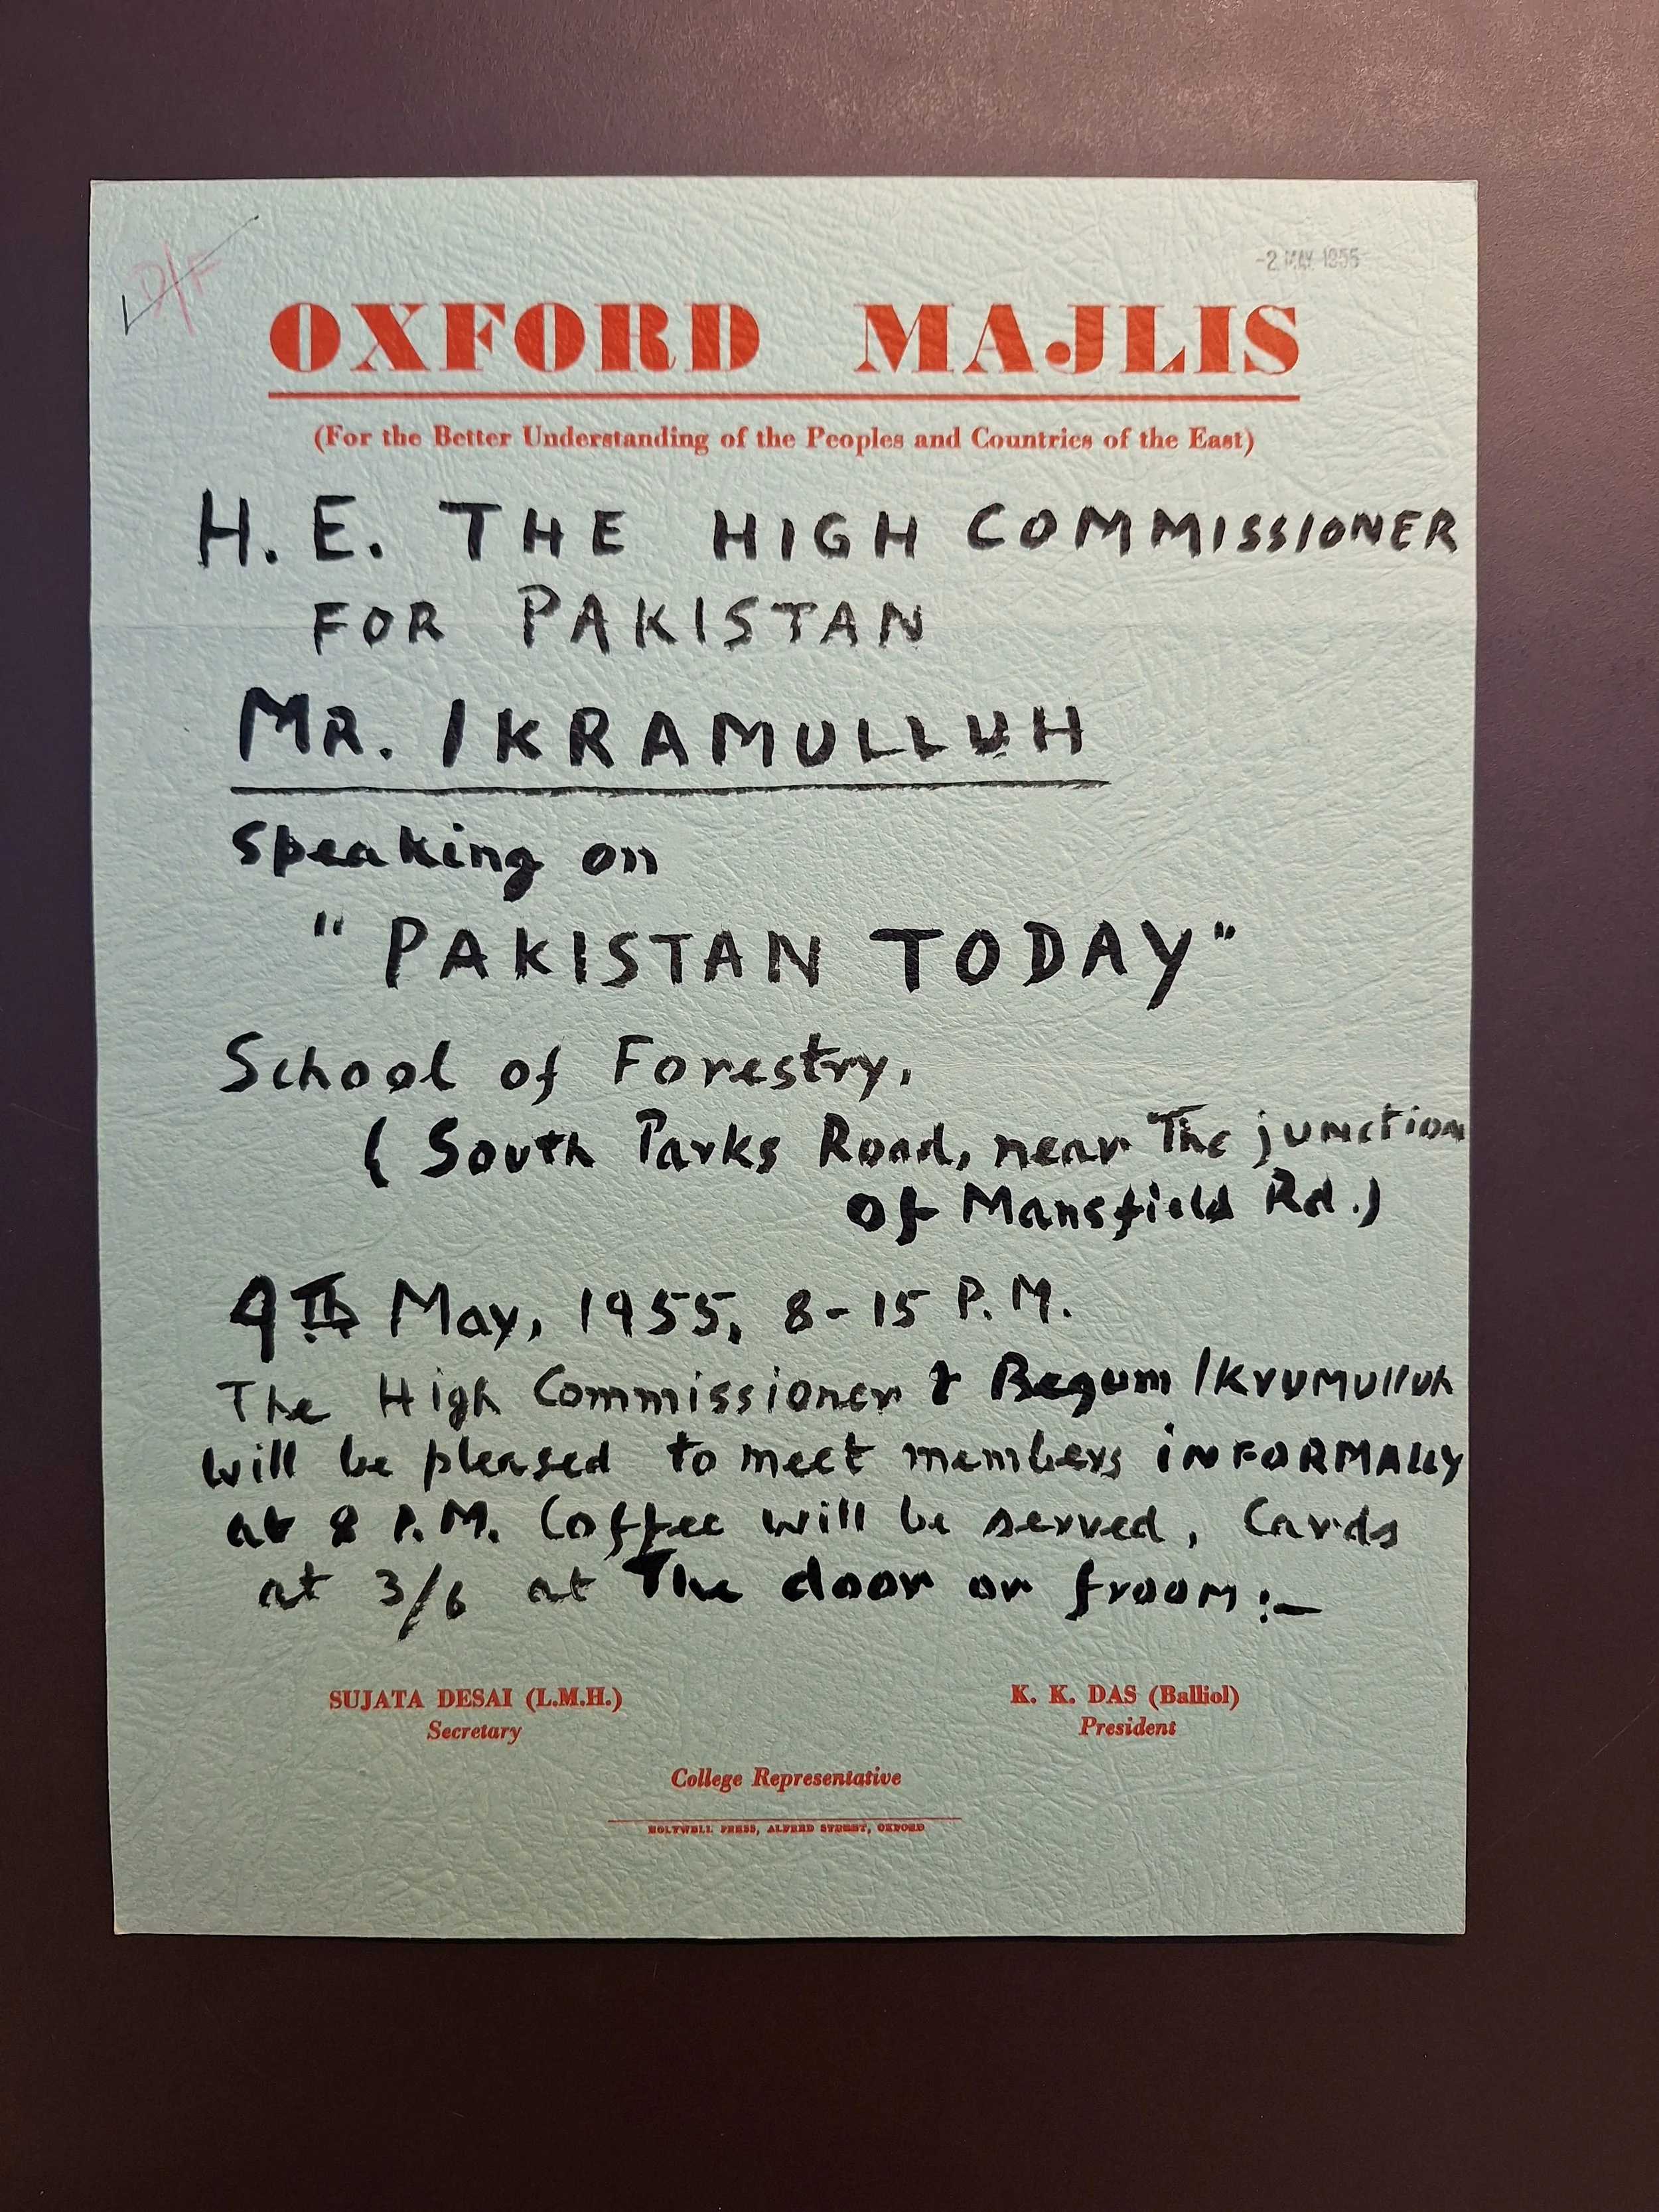 D/F
-2 MAY 1955
OXFORD MAJLIS
(For the Better Understanding of the Peoples and Countries of the East)
H. E. THE HIGH COMMISSIONER
FOR PAKISTAN
MR. IKRAMULLUH
speaking on
"PAKISTAN TODAY"
School of Forestry,
( South Parks Road, near The junction
of Mansfield Rd.)
9Th May, 1955, 8-15 P.M.
The High Commissioner & Begum Ikrumulluh
will be pleased to meet members INFORMALLY
at 8 P.M. Coffee will be served, Cards
at 3/6 at The door or froom:-
SUJATA DESAI (L.M.H.)
Secretary
K. K. DAS (Balliol)
President
College Representative
HOLYWELL PRESS, ALFRED STREET, OXFORD